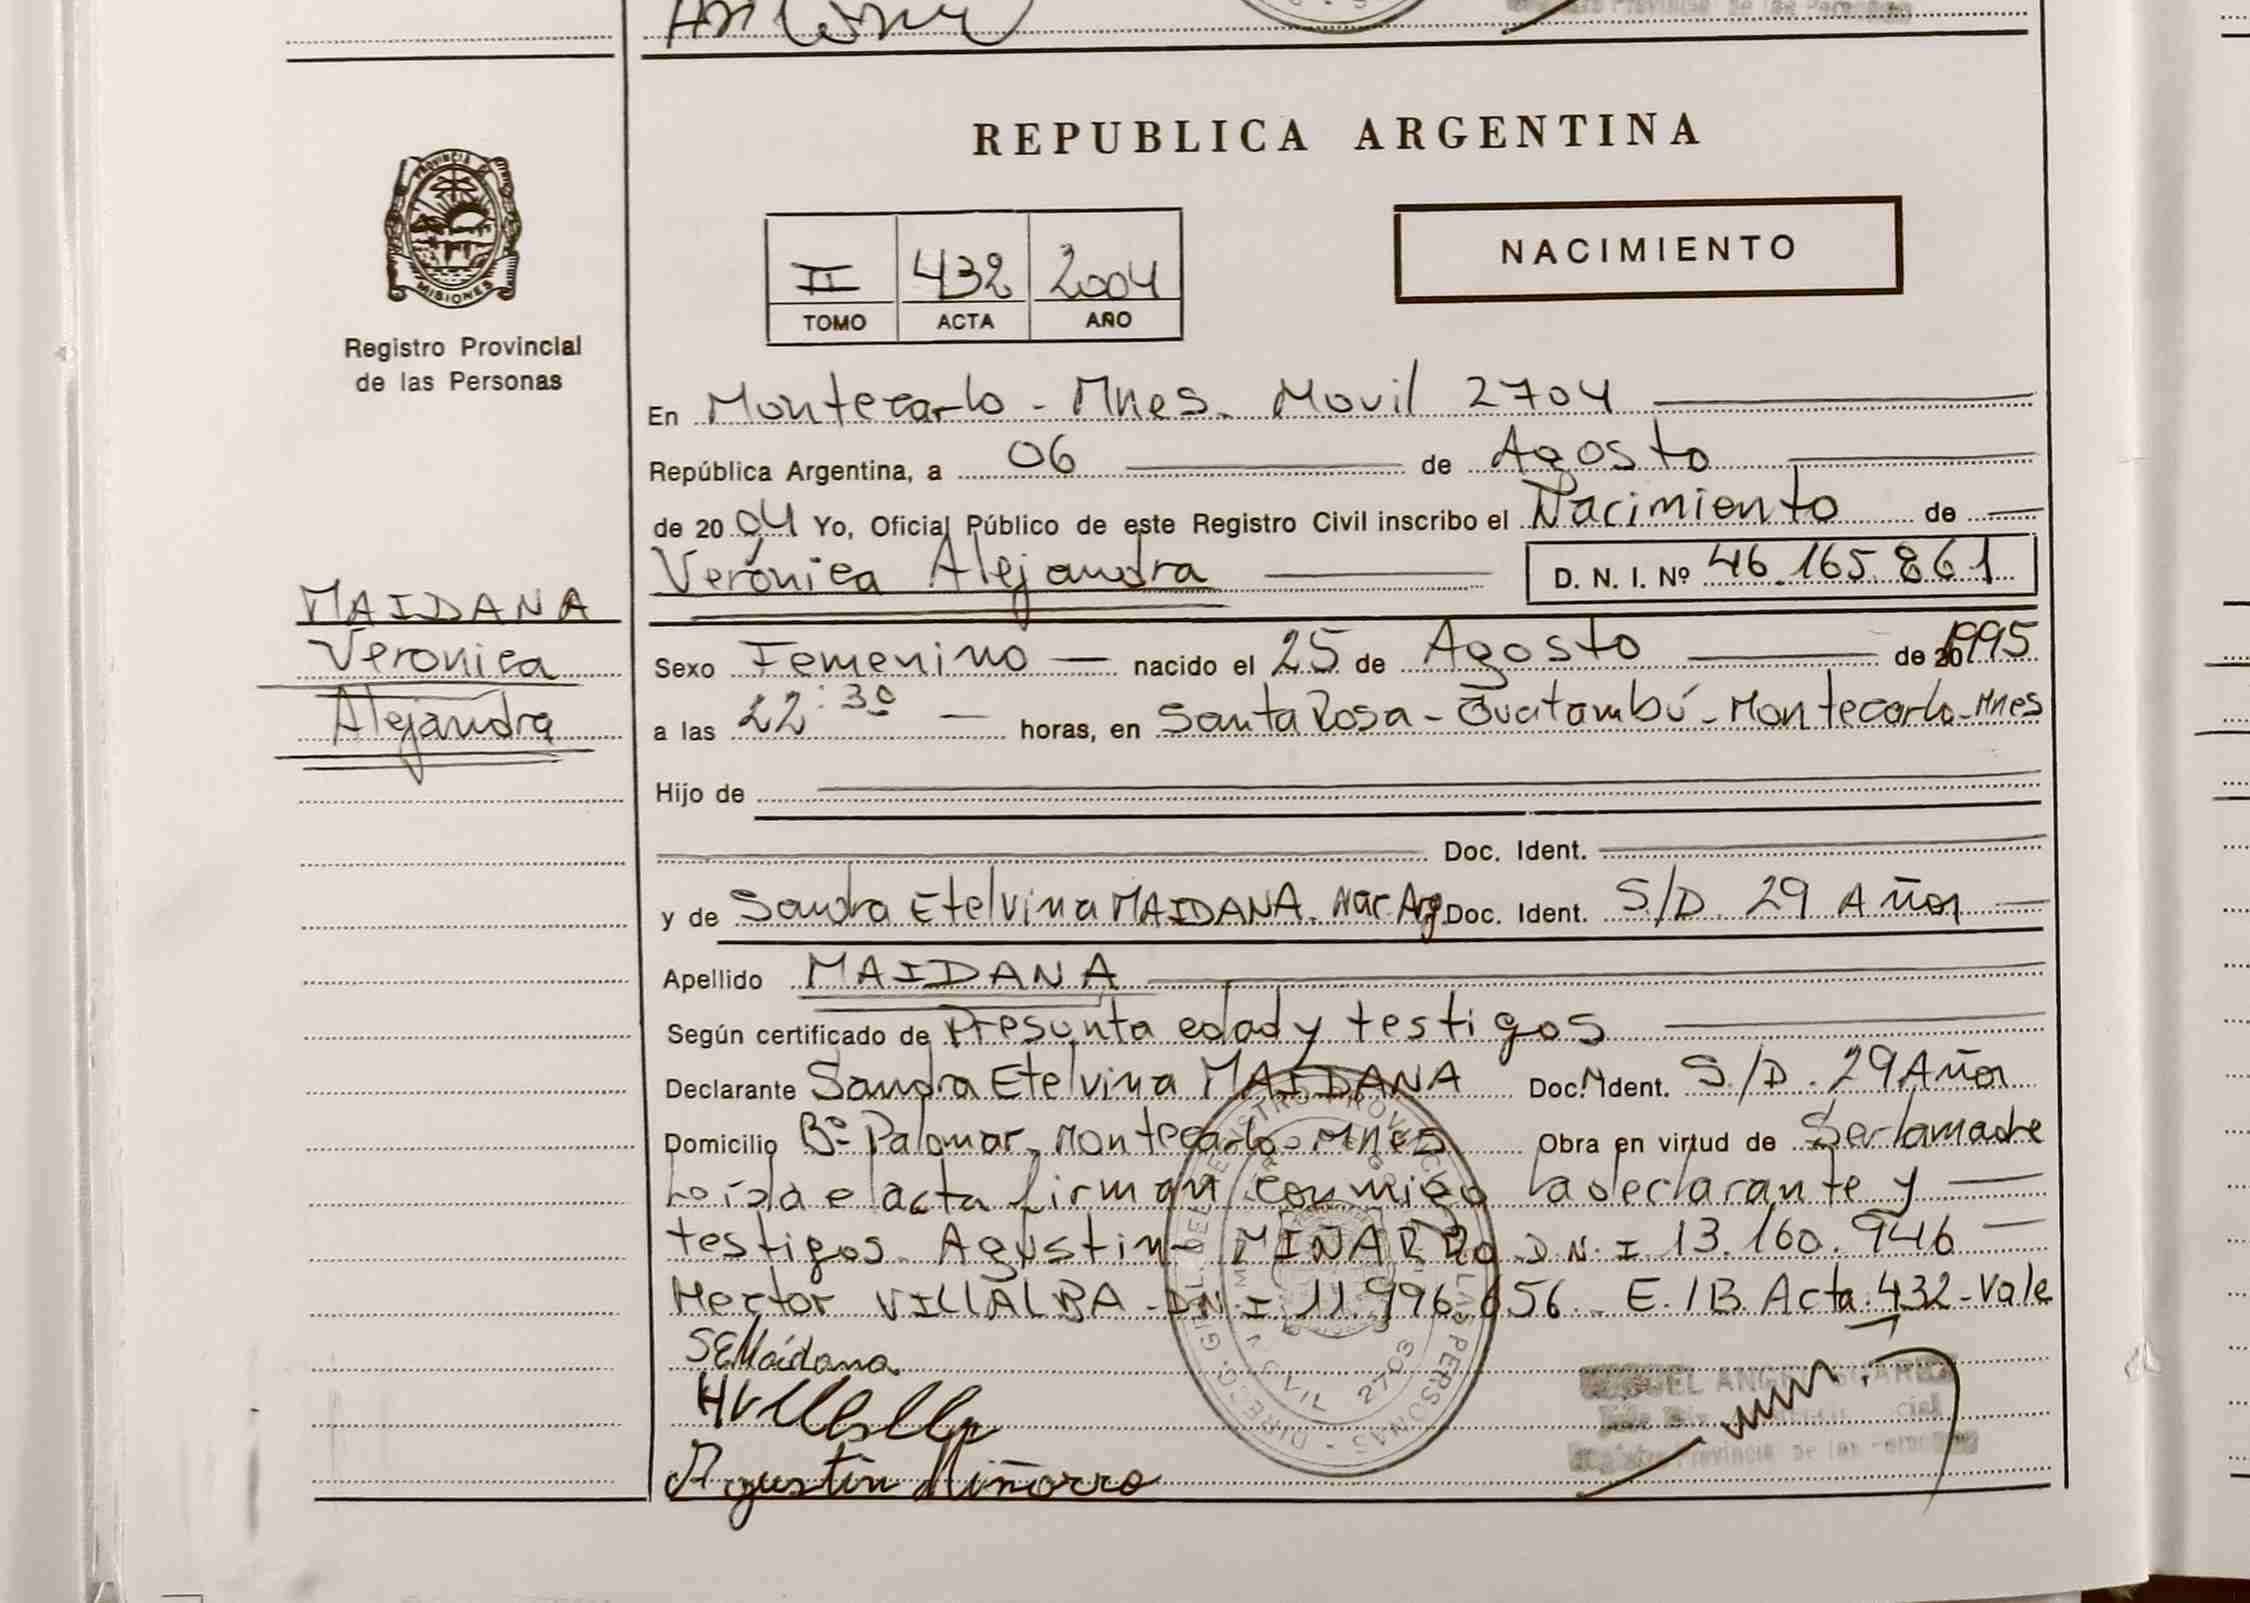 REPUBLICA ARGENTINA
PROVINCIA
MISIONES
Registro Provincial
de las Personas
II 432 2004
TOMO ACTA AÑO
NACIMIENTO
En Montecarlo - Mnes. Movil 2704
República Argentina, a 06 de Agosto
de 2004 Yo, Oficial Público de este Registro Civil inscribo el Nacimiento de
Verónica Alejandra D. N. I. Nº 46.165.861
MAIDANA
Veronica
Alejandra
Sexo Femenino nacido el 25 de Agosto de 1995
a las 22:30 horas, en Santa Rosa - Guatambú - Montecarlo - Mnes
Hijo de
Doc. Ident.
y de Sandra Etelvina MAIDANA. Nac. Arg Doc. Ident. S/D. 29 Años
Apellido MAIDANA
Según certificado de Presunta edad y testigos
Declarante Sandra Etelvina MAIDANA Doc. Ident. S/D. 29 Años
Domicilio Bº Palomar. Montecarlo - Mnes Obra en virtud de Ser la madre
Leída el acta firman conmigo la declarante y
testigos. Agustin MIÑARRO D.N.I 13.160.946
Hector VILLALBA - DN.I. 11.996.656. E./B. Acta. 432 - Vale
SEMaidana
Agustin Miñarro
MIGUEL ANGEL